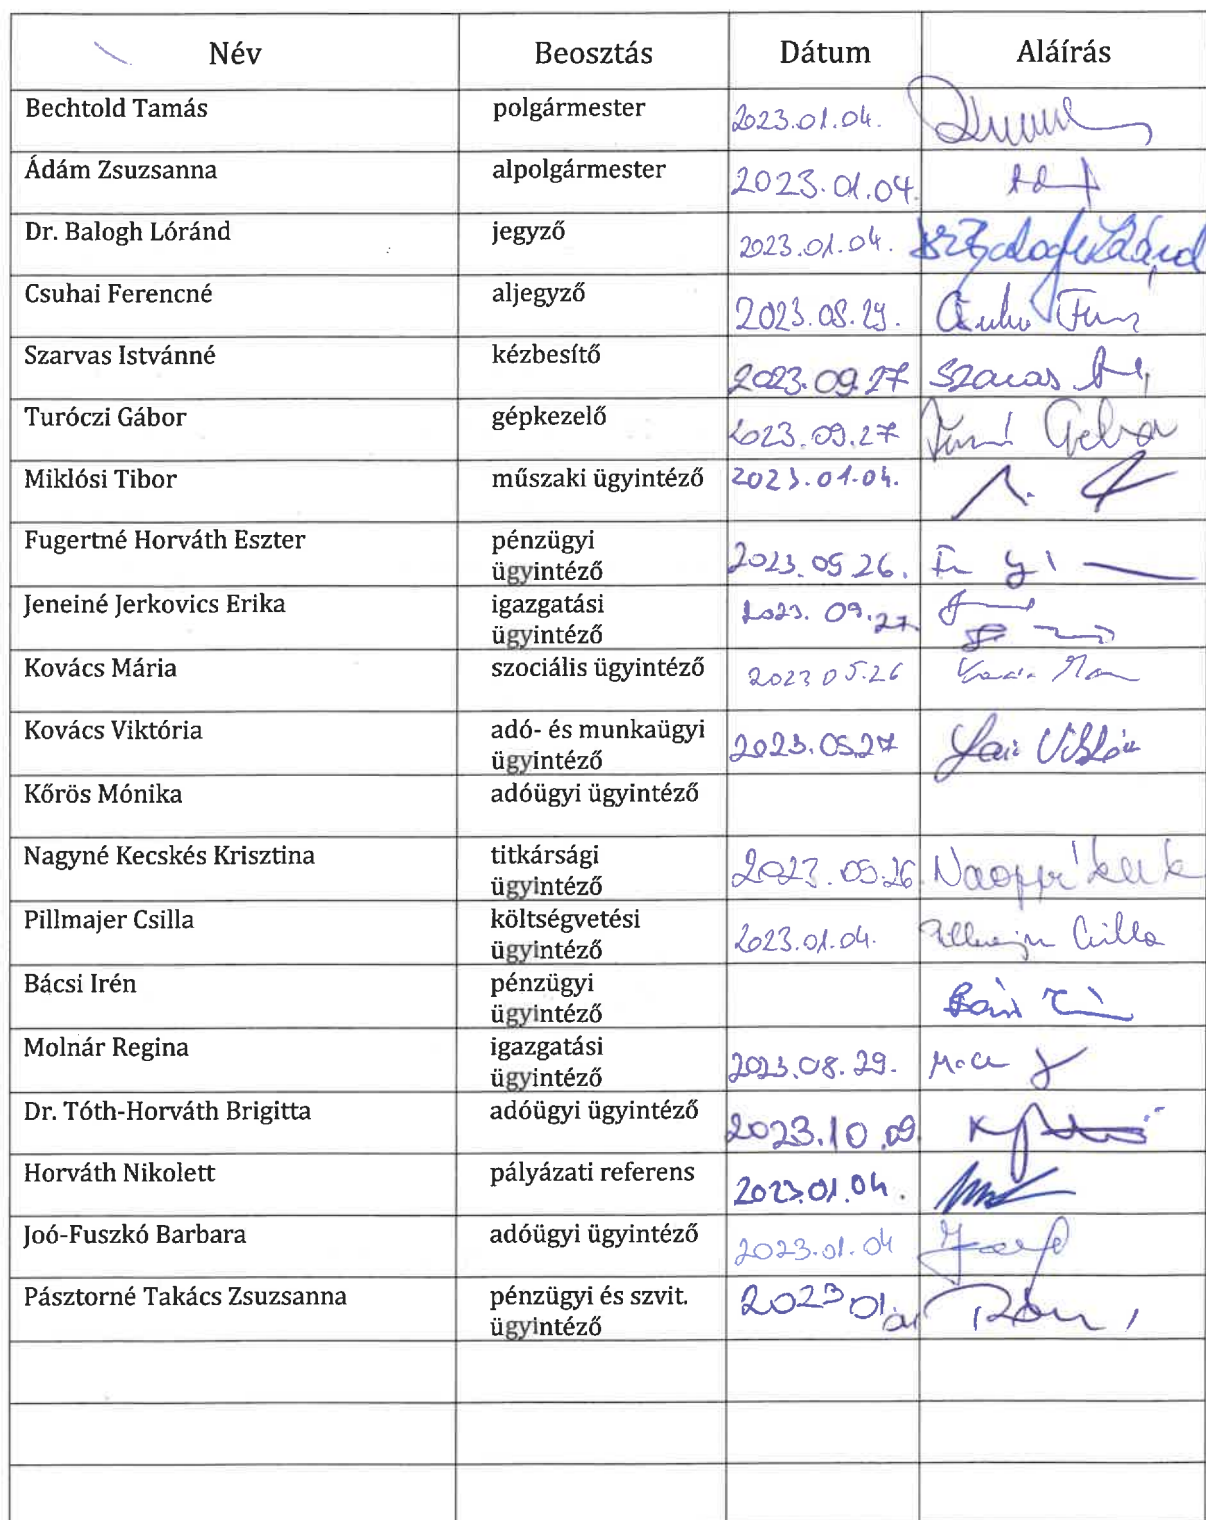 Név Beosztás Dátum Aláírás
Bechtold Tamás polgármester 2023.01.04.
Ádám Zsuzsanna alpolgármester 2023.01.04.
Dr. Balogh Lóránd jegyző 2023.01.04. Dr Balogh Lóránd
Csuhai Ferencné aljegyző 2023.08.29.
Szarvas Istvánné kézbesítő 2023.09.27 Szarvas
Turóczi Gábor gépkezelő 2023.09.27
Miklósi Tibor műszaki ügyintéző 2023.01.04.
Fugertné Horváth Eszter pénzügyi 2023.09.26.
ügyintéző
Jeneiné Jerkovics Erika igazgatási 2023.09.27.
ügyintéző
Kovács Mária szociális ügyintéző
Kovács Viktória adó- és munkaügyi
ügyintéző
Kőrös Mónika adóügyi ügyintéző
Nagyné Kecskés Krisztina titkársági
ügyintéző
Pillmajer Csilla költségvetési 2023.01.04. Pillmajer Csilla
ügyintéző
Bácsi Irén pénzügyi
ügyintéző
Molnár Regina igazgatási 2023.08.29.
ügyintéző
Dr. Tóth-Horváth Brigitta adóügyi ügyintéző 2023.10.09
Horváth Nikolett pályázati referens 2023.01.04.
Joó-Fuszkó Barbara adóügyi ügyintéző 2023.01.04
Pásztorné Takács Zsuzsanna pénzügyi és szvit. 2023 01.
ügyintéző